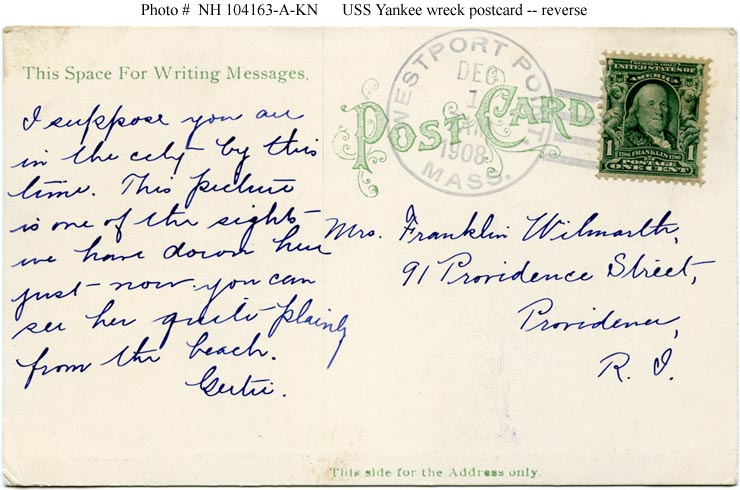 Photo # NH 104163-A-KN USS Yankee wreck postcard -- reverse
This Space For Writing Messages.
I suppose you are
in the city by this
time. This picture
is one of the sights
we have down here
just now. you can
see her quite plainly
from the beach.
Gertie.
POST CARD
WESTPORT POINT.
DEC
1
AM
1908
MASS.
SERIES 1902
UNITED STATES OF
AMERICA
1 FRANKLIN 1
1706 1790
POSTAGE
ONE CENT
Mrs. Franklin Wilmarth,
91 Providence Street,
Providence,
R. I.
This side for the Address only.